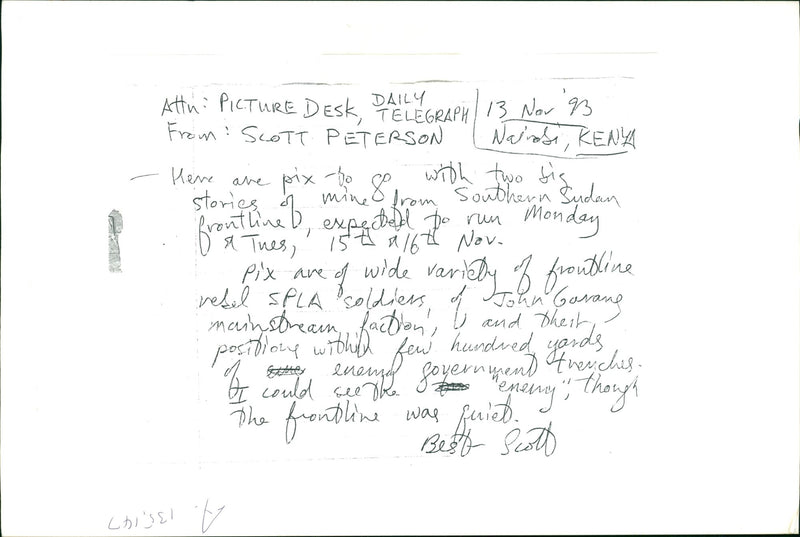 Attn: PICTURE DESK, DAILY TELEGRAPH
13 Nov '93
From: SCOTT PETERSON
Nairobi, KENYA
— Here are pix to go with two big
stories of mine from Southern Sudan
frontline, expected to run Monday
& Tues, 15th & 16th Nov.
Pix are of wide variety of frontline
rebel SPLA soldiers, of John Garang
mainstream faction, and their
positions within few hundred yards
of enemy government trenches.
I could see the "enemy", though
the frontline was quiet.
Best Scott
135,147